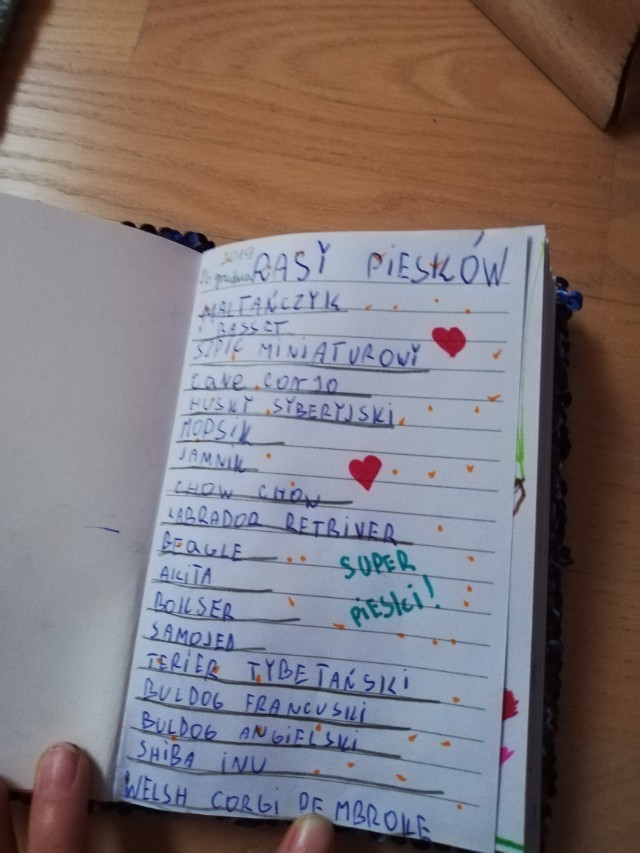 2019
26 grudnia RASY PiESKÓW
MALTAŃCZYK
BASSET
SZPIC MINIATUROWY
CANE CORSO
HUSKY SYBERYJSKI
MOPSiK
JAMNIK
CHOW CHOW
LABRADOR RETRIVER
BEAGLE
SUPER
AKiTA
PiESKi!
BOKSER
SAMOJED
TERIER TYBETAŃSKI
BULDOG FRANCUSKi
BULDOG ANGIELSKi
SHiBA iNU
WELSH CORGi PEMBROKE